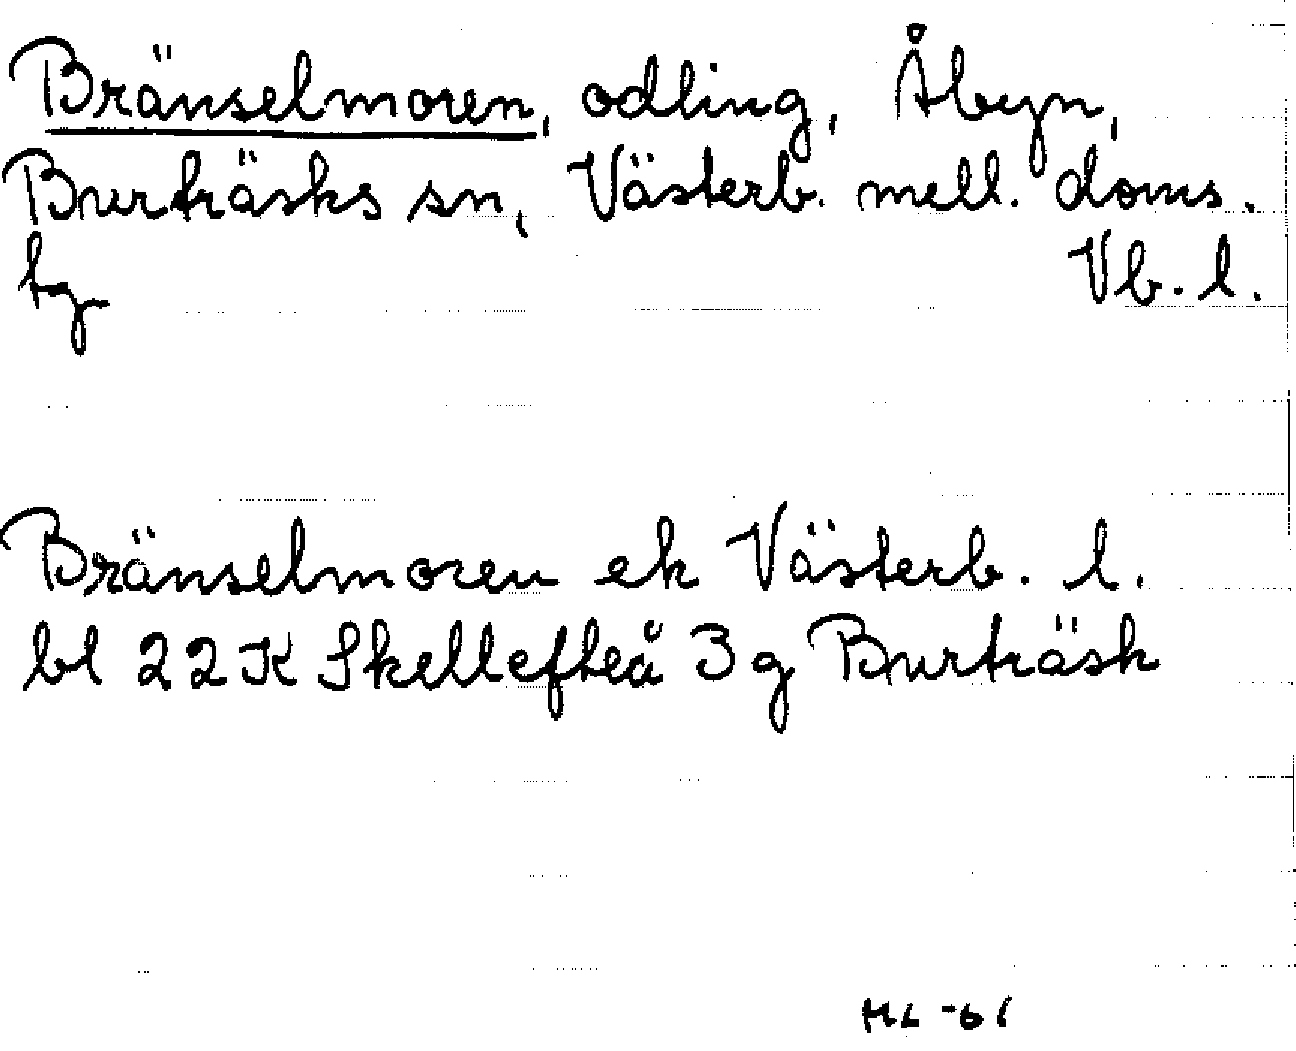 Bränselmoren, odling, Åbyn,
Burträsks sn, Västerb. mell. doms.
tg Vb. l.
Bränselmoren ek Västerb. l.
bl 22K Skellefteå 3g Burträsk
HL -61